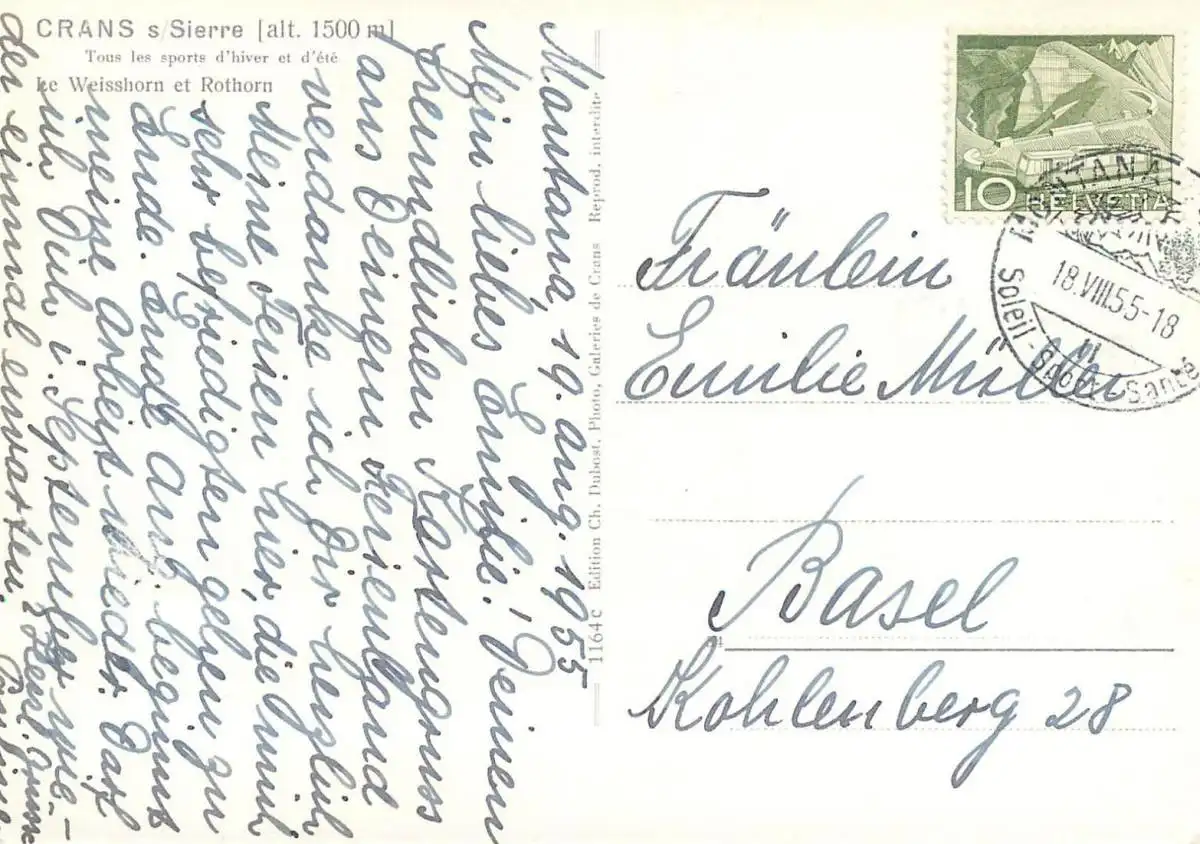 CRANS s/Sierre [alt. 1500 m]
Tous les sports d'hiver et d'été
Le Weisshorn et Rothorn
Montana, 19. Aug. 1955
Mein liebes Emilie! Deinen
freundlichen Kartengruss
aus Deinem Ferienland
verdanke ich Dir herzlich
Meine Ferien hier, die mich
sehr befriedigten gehen zu
Ende. Ende Aug. beginnt
meine Arbeit wieder. Darf
ich Dich i. September wie-
der einmal erwarten.
Herzl. Grüsse
1164 C Edition Ch. Dubost, Photo, Galeries de Crans Reprod. interdite
10 HELVETIA
MONTANA
18.VIII.55-18
Soleil - Sports - Santé
Fräulein
Emilie Müller
Basel
Kohlenberg 28